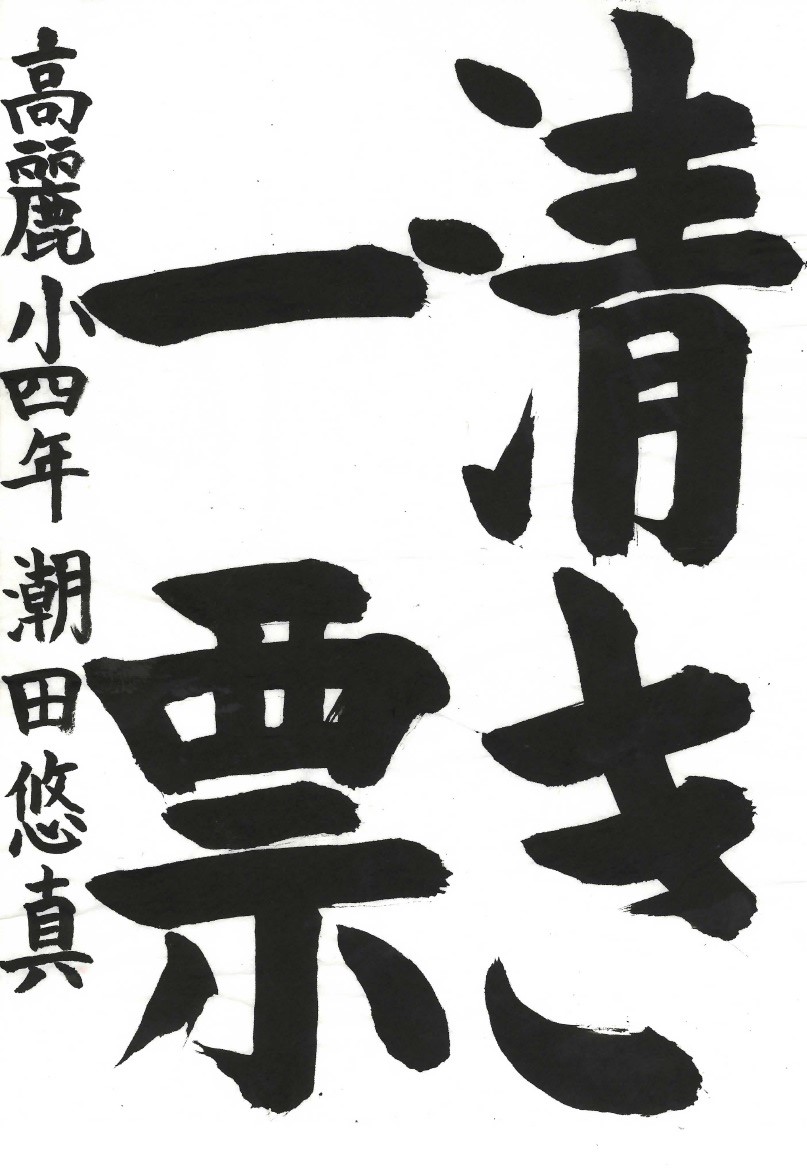 清き
一票
高麗小四年 潮田悠真